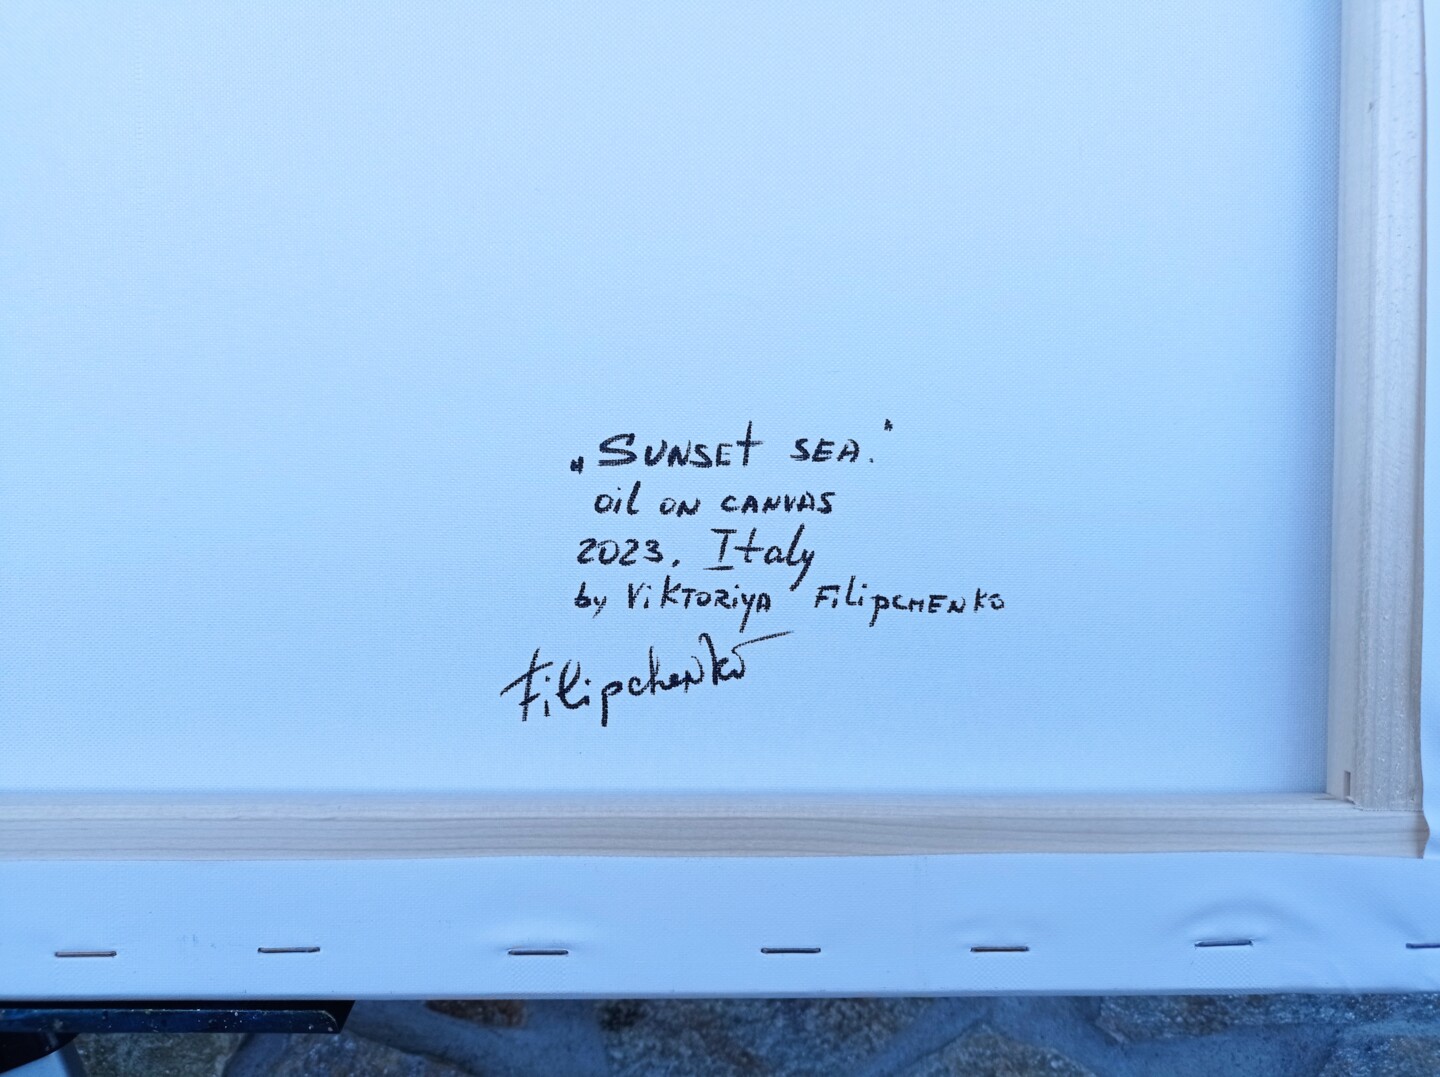 „Sunset sea."
oil on canvas
2023. Italy
by Viktoriya Filipchenko
Filipchenko